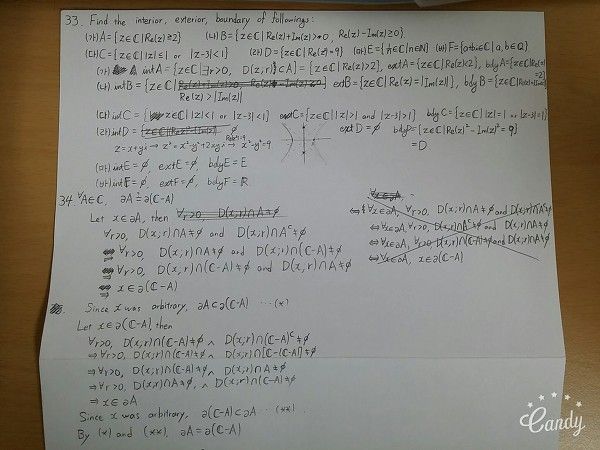 33. Find the interior, exterior, boundary of followings:
(가) A={z∈ℂ|Re(z)≥2} (나) B={z∈ℂ|Re(z)+Im(z)>0, Re(z)-Im(z)≥0}
(다) C={z∈ℂ||z|≤1 or |z-3|<1} (라) D={z∈ℂ|Re(z²)=9} (마) E={ⁱ/n∈ℂ|n∈ℕ} (바) F={a+bi∈ℂ|a,b∈ℚ}
(가) intA={z∈ℂ|∃r>0, D(z,r)⊂A}={z∈ℂ|Re(z)>2}, extA={z∈ℂ|Re(z)<2}, bdyA={z∈ℂ|Re(z)=2}
(나) intB={z∈ℂ| Re(z)>|Im(z)| extB={z∈ℂ|Re(z)<|Im(z)|}, bdyB={z∈ℂ|Re(z)=|Im(z)|}
(다) intC={ |z|<1 or |z-3|<1} extC={z∈ℂ||z|>1 and |z-3|>1} bdyC={z∈ℂ||z|=1 or |z-3|=1}
(라) intD= ∅ extD=∅ bdyD={z∈ℂ|Re(z)²-Im(z)²=9}
z=x+yi⇒z²=x²-y²+2xyi⇒x²-y²=9 =D
(마) intE=∅, extE=∅, bdyE=E
(바) intF=∅, extF=∅, bdyF=ℝ
34. ∀A∈ℂ, ∂A=∂(ℂ-A)
Let x∈∂A, then
∀r>0, D(x;r)∩A≠∅ and D(x;r)∩Aᶜ≠∅
⇒∀r>0, D(x;r)∩A≠∅ and D(x;r)∩(ℂ-A)≠∅
⇒∀r>0, D(x;r)∩(ℂ-A)≠∅ and D(x,r)∩A≠∅
⇒x∈∂(ℂ-A)
Since x was arbitrary, ∂A⊂∂(ℂ-A) ⋯(*)
Let x∈∂(ℂ-A) then
∀r>0, D(x;r)∩(ℂ-A)≠∅ ∧ D(x;r)∩(ℂ-A)ᶜ≠∅
⇒∀r>0, D(x;r)∩(ℂ-A)≠∅ ∧ D(x;r)∩[ℂ-(ℂ-A)]≠∅
⇒∀r>0, D(x;r)∩(ℂ-A)≠∅ ∧ D(x;r)∩A≠∅
⇒∀r>0, D(x;r)∩A≠∅, ∧ D(x;r)∩(ℂ-A)≠∅
⇒x∈∂A
Since x was arbitrary, ∂(ℂ-A)⊂∂A ⋯(**)
By (*) and (**), ∂A=∂(ℂ-A)
Candy